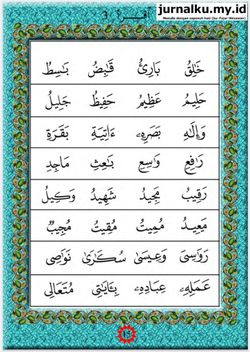 jurnalku.my.id
Menulis dengan sepenuh hati (Sur Fajar Nirwanan)
إقرأ 3
خَلِقُ بَارِئُ قَابِضُ بَاسِطُ
حَلِيمُ عَظِيمُ حَفِيظُ جَلِيلُ
وَإِلَٰهُ بَصَرِهِۦ ءَاتِيَةٌ بَقَرَةِ
رَافِعِ وَاسِعِ بَاعِثِ مَاجِدِ
رَقِيبُ مَجِيدُ شَهِيدُ وَكِيلُ
مَعِيدُ مُمِيتُ مُقِيتُ مُجِيبُ
رَوَاسِىَ وَعِيسَىٰ سُكَارَىٰ نَوَاصِى
عَمَلِهِۦ عِبَادِهِۦ بِـَٔايَٰتِى مُتَعَالِى